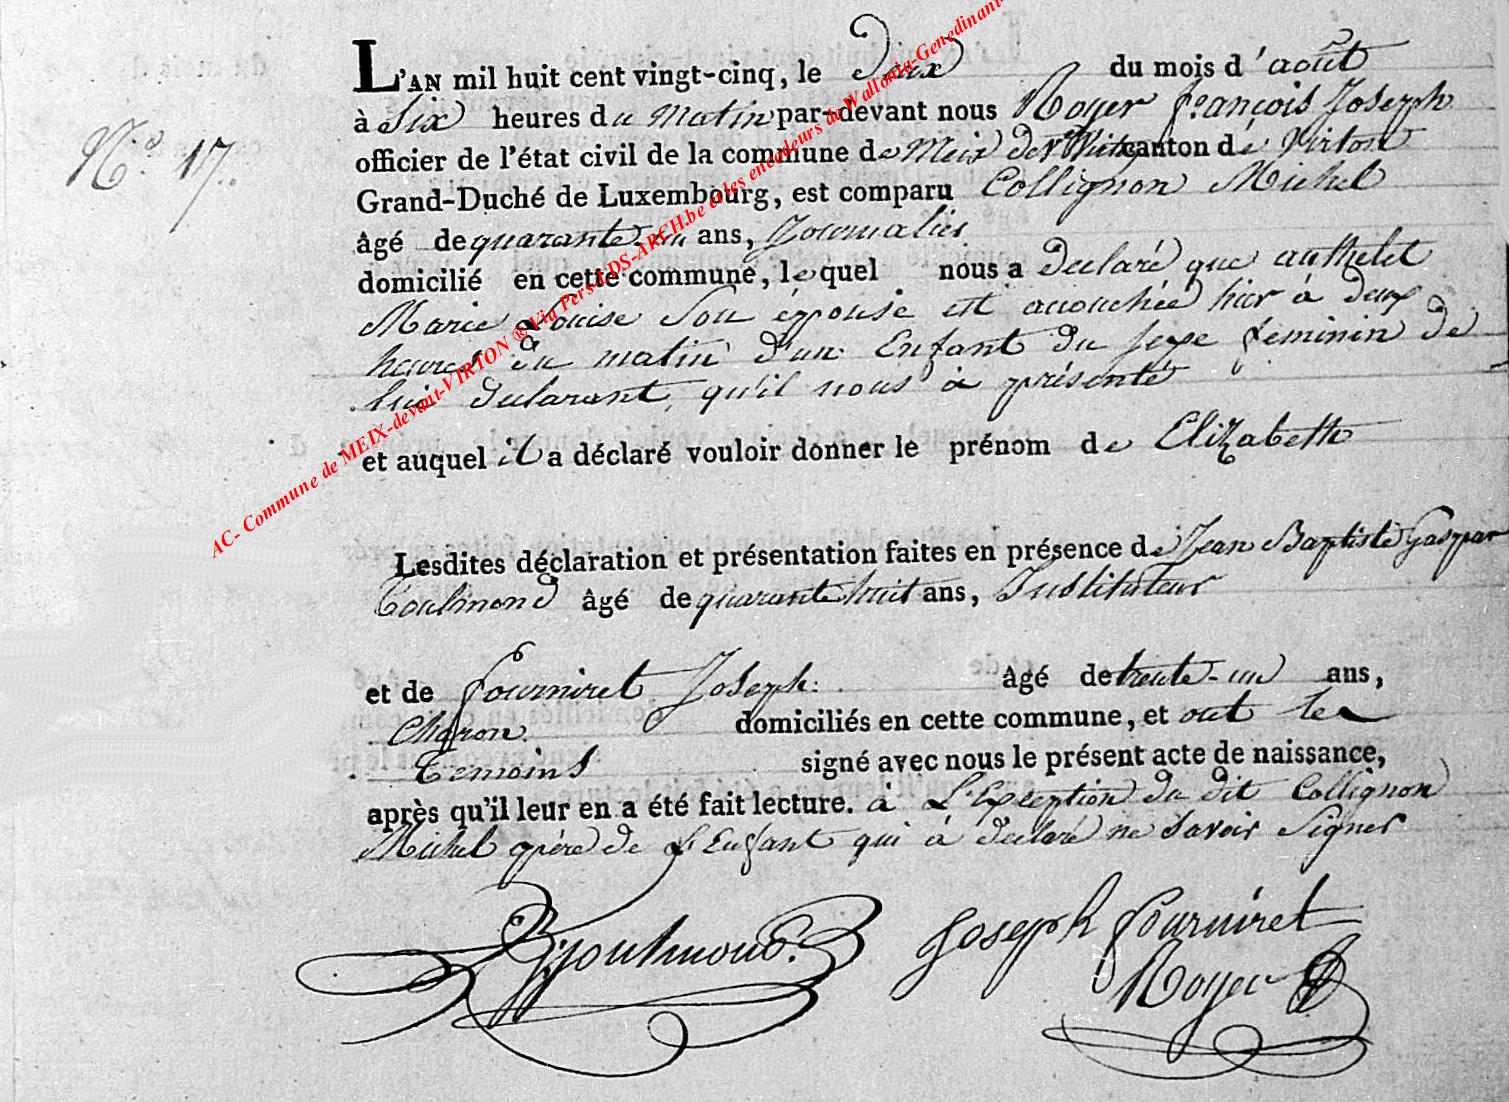 N.° 17.
L'AN mil huit cent vingt-cinq, le deux du mois d'août
à Six heures du matin par-devant nous Royer françois Joseph
officier de l'état civil de la commune de Meix devt Virton canton de Virton
Grand-Duché de Luxembourg, est comparu Collignon Michel
âgé de quarante un ans, Journalier
domicilié en cette commune, lequel nous a declaré que authelet
Marie Louise Son épouse est acouchée hier à deux
heures du matin d'un Enfant du sexe feminin de
lui declarant, qu'il nous à présenté
et auquel il a déclaré vouloir donner le prénom de Elizabeth
Lesdites déclaration et présentation faites en présence de Jean Baptiste Gaspar
Toulmond âgé de quarante huit ans, Instituteur
et de fourniret Joseph. âgé de trente-un ans,
Charon. domiciliés en cette commune, et ont les
Temoins signé avec nous le présent acte de naissance,
après qu'il leur en a été fait lecture. à L'Exception du dit Collignon
Michel père de L'Enfant qui à declaré ne savoir Signer
Toulmond. Joseph fourniret
Royer
AC- Commune de MEIX-devant-VIRTON ® Via Persd DS-ARCH.be et les encodeurs du Wallonia-Genedinant